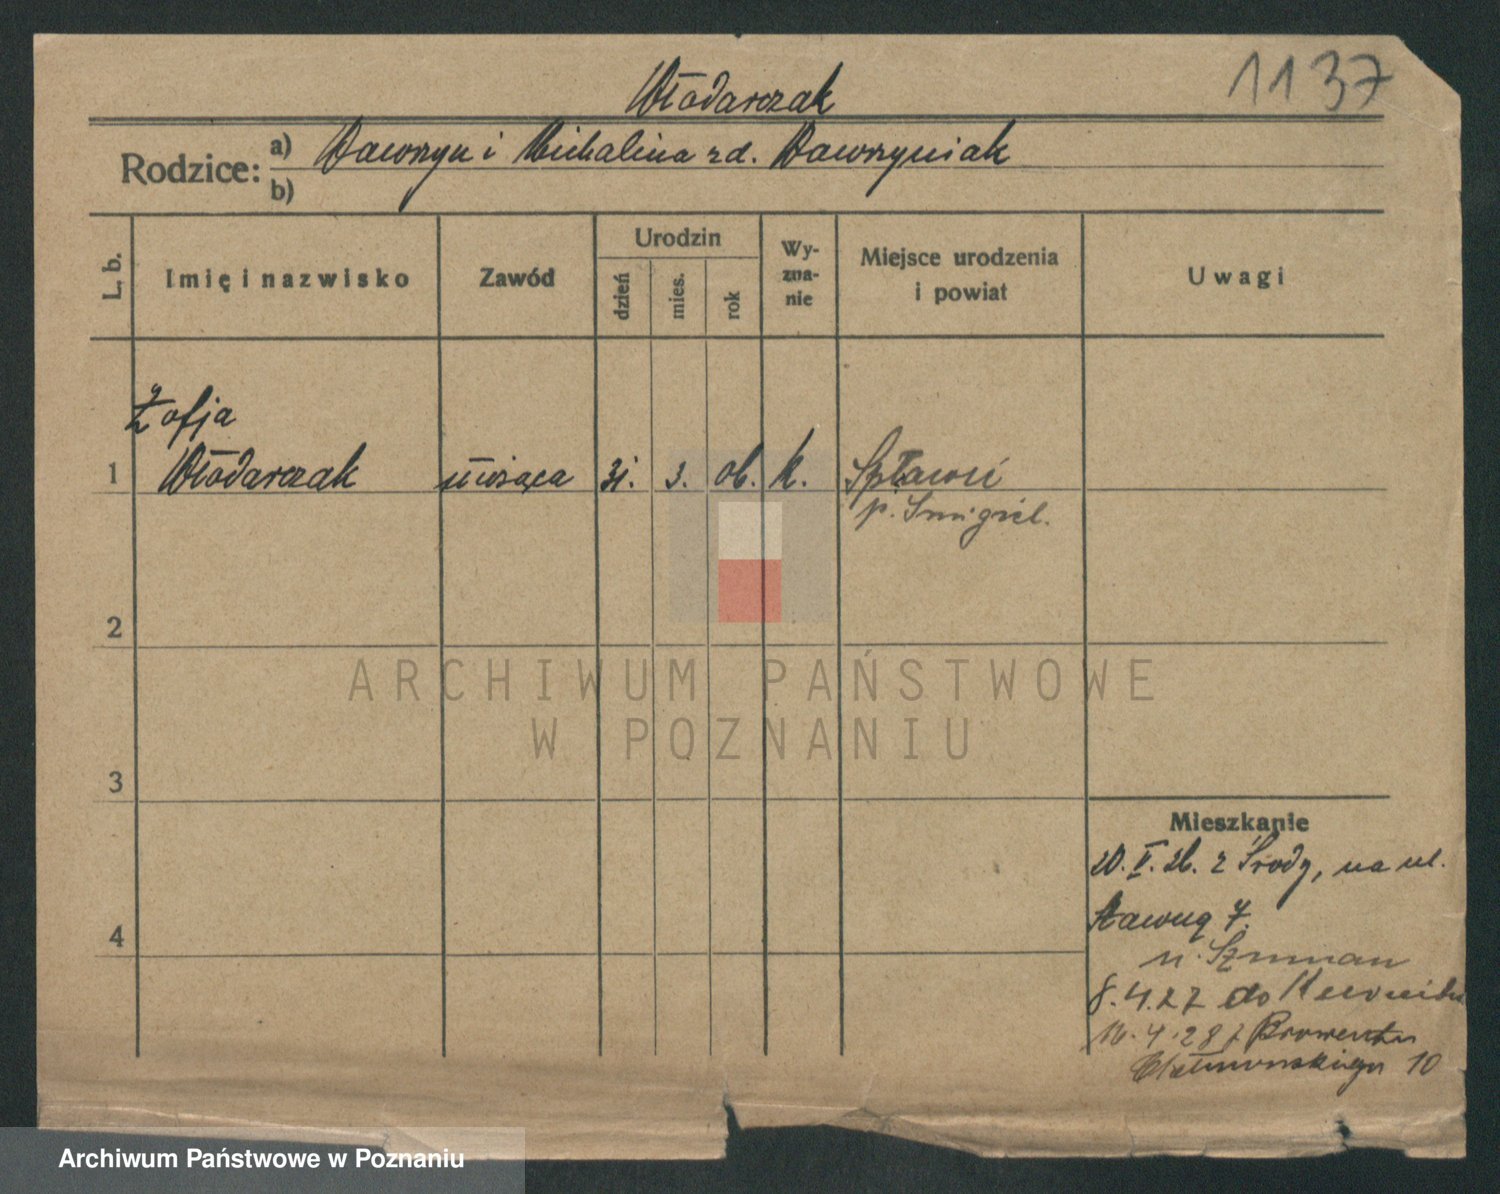 1137
Włodarczak
Rodzice: a) Wawrzyn i Michalina zd. Wawrzyniak
b)
L. b. Imię i nazwisko Zawód Urodzin dzień mies. rok Wyznanie Miejsce urodzenia i powiat Uwagi
Zofja
1 Włodarczak służąca 31. 3. ob. k. Spławie
p. Śmigiel.
2
ARCHIWUM PAŃSTWOWE
W POZNANIU
3
Mieszkanie
20. V. 26. z Środy, na ul.
4 Stawną 7.
u. Szuman
8.4.27 do
16.4.28 z
10
Archiwum Państwowe w Poznaniu